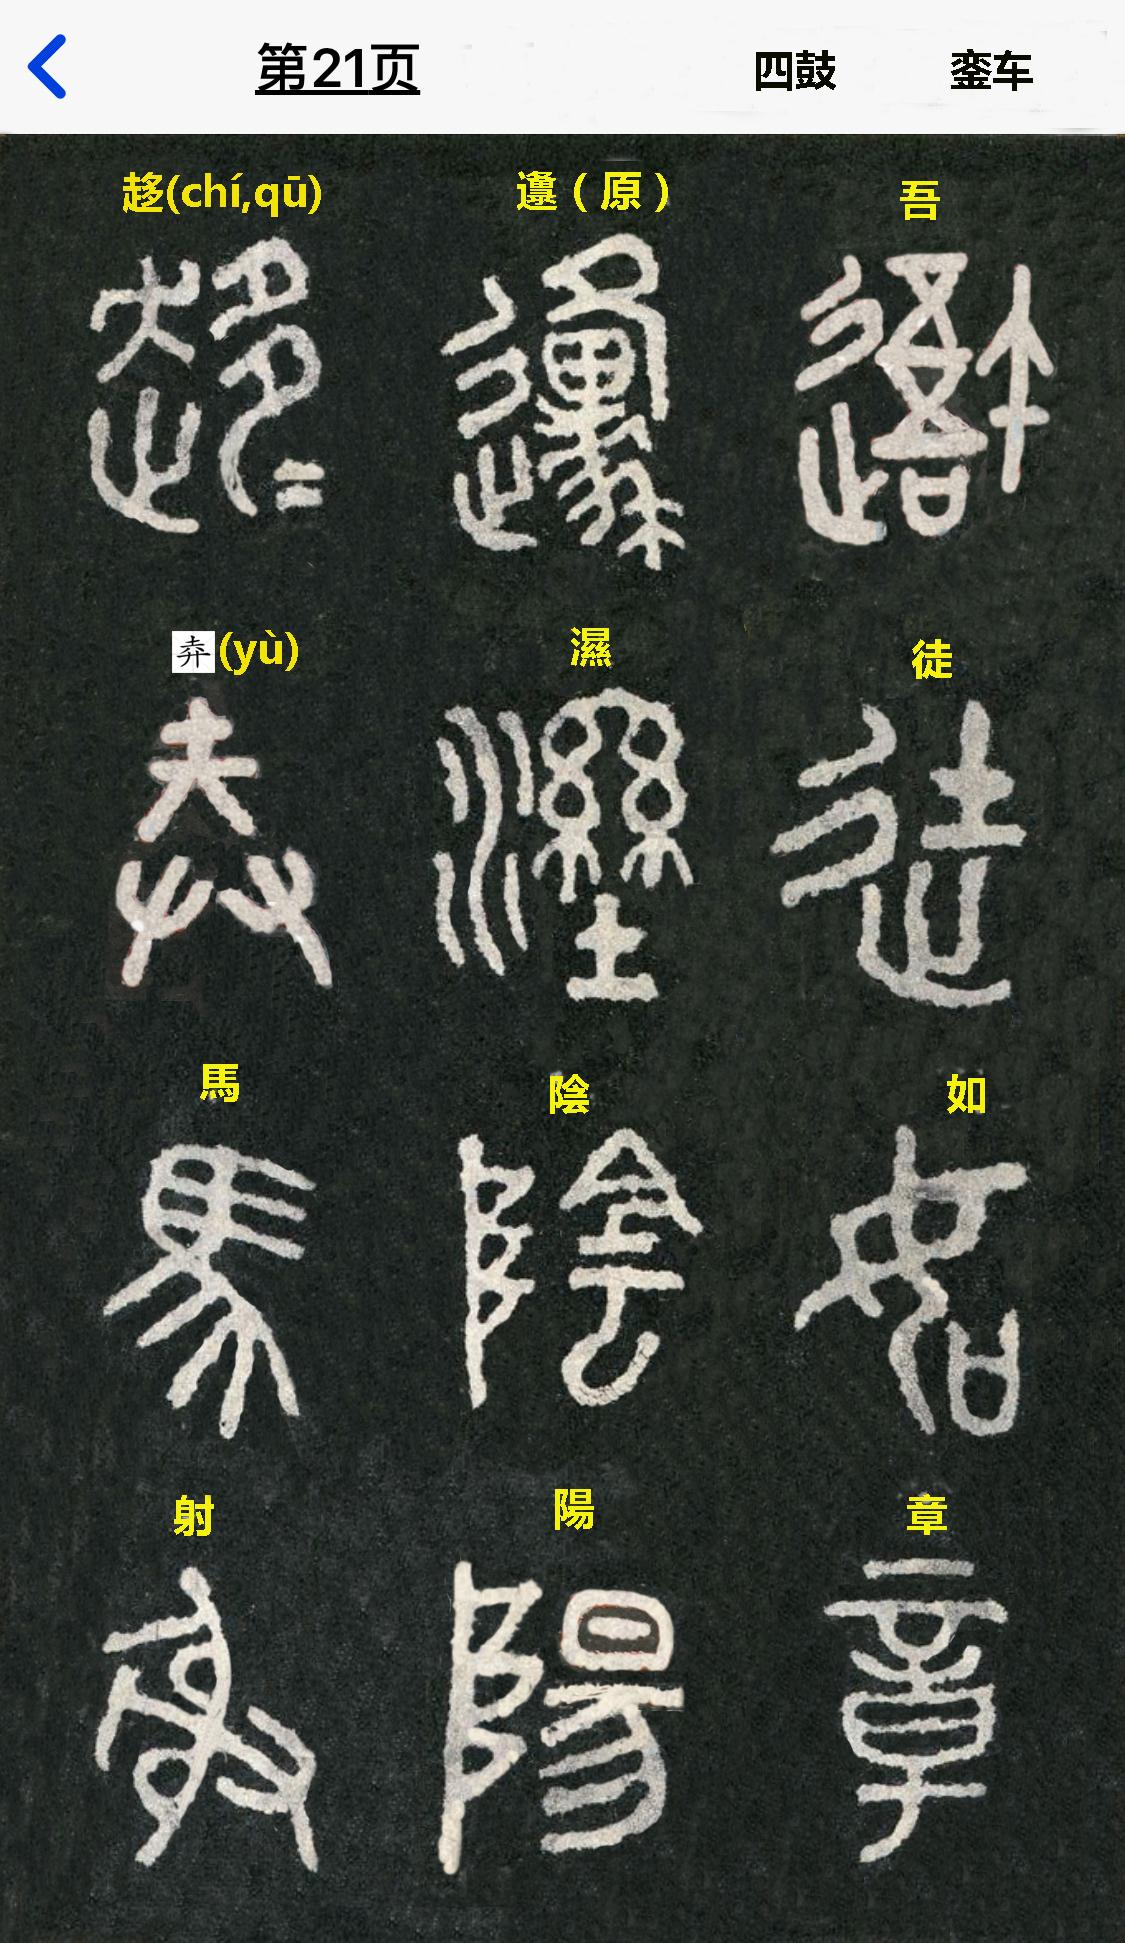 第21页 四鼓 銮车
吾
徒
如
章
邍（原）
濕
陰
陽
趍(chí,qū)
(yù)
馬
射